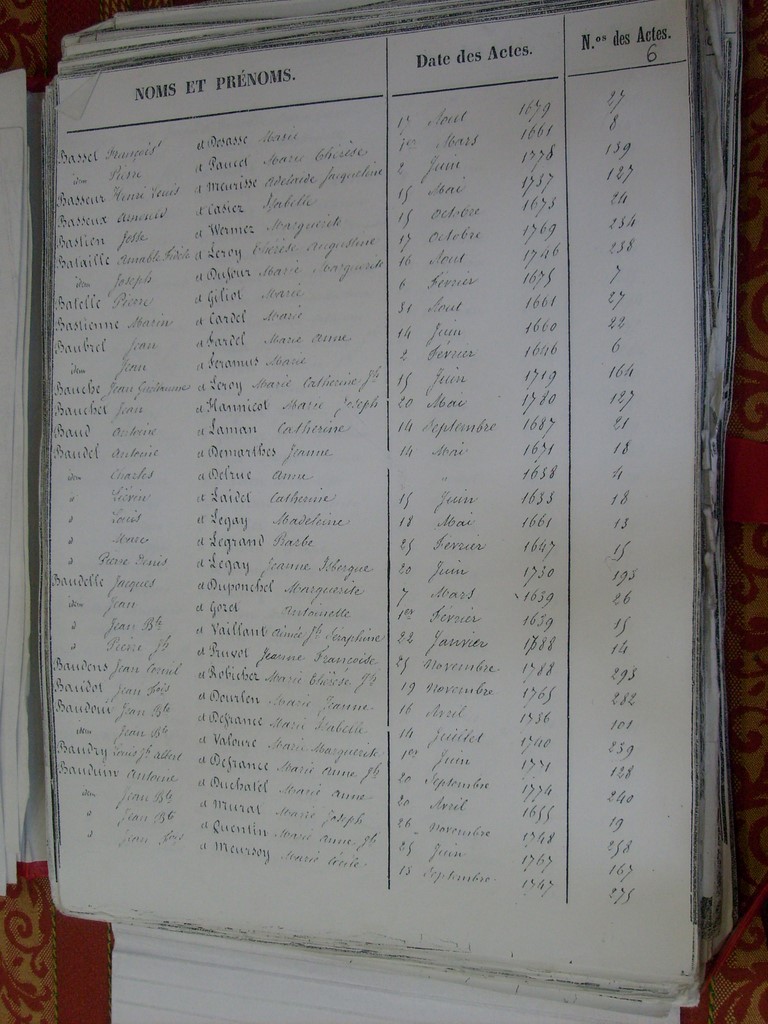 NOMS ET PRÉNOMS. Date des Actes. N.os des Actes.
6
Bassel François et Desasse Marie 17 Aout 1679 27
idem Pierre et Paucet Marie Thérèse 1er Mars 1661 8
Basseur Henri Louis et Meurisse Adelaide Jacqueline 2 Juin 1778 139
Basseux Arnould et Casiez Isabelle 15 Mai 1737 127
Bastien Josse et Wermez Marguerite 15 Octobre 1673 24
Bataille Amable Fidèle et Leroy Thérèse Augustine 17 Octobre 1769 234
idem Joseph et Dufour Marie Marguerite 16 Aout 1746 238
Batelle Pierre et Giliot Marie 6 Février 1675 7
Bastienne Marin et Cardel Marie 31 Aout 1661 27
Baubrel Jean et Fardel Marie Anne 14 Juin 1660 22
idem Jean et Feramus Marie 2 Février 1646 6
Bauche Jean Guillaume et Leroy Marie Catherine Jh 15 Juin 1719 164
Bauchet Jean et Hannicot Marie Joseph 20 Mai 1780 127
Baud Antoine et Laman Catherine 14 Septembre 1687 21
Baudel Antoine et Demarthes Jeanne 14 Mai 1671 18
idem Charles et Delrue Anne " 1638 4
" Liévin et Laidet Catherine 15 Juin 1633 18
" Louis et Legay Madeleine 18 Mai 1661 13
" Marc et Legrand Barbe 25 Fevrier 1647 15
" Pierre Denis et Legay Jeanne Isbergue 20 Juin 1730 193
Baudelle Jacques et Duponchel Marguerite 7 Mars 1639 26
idem Jean et Gozet Antoinette 1er Février 1639 15
" Jean Bte et Vaillant Aimée Jh Séraphine 22 Janvier 1688 14
" Pierre Jh et Pruvot Jeanne Françoise 25 Novembre 1788 293
Baudens Jean et Robichez Marie Thérèse Jh 19 Novembre 1765 282
Baudot Jean Fois et Dourlen Marie Jeanne 16 Avril 1736 101
Baudoui Jean Bte et Defrance Marie Isabelle 14 Juillet 1740 239
idem Jean Bte et Valoure Marie Marguerite 1er Juin 1771 128
Baudry Louis Jh Albert et Defrance Marie Anne Jh 20 Septembre 1774 240
Bauduin Antoine et Duchatel Marie Anne 20 Avril 1655 19
idem Jean Bte et Murat Marie Joseph 26 Novembre 1748 258
" Jean Bte et Quentin Marie Anne Jh 25 Juin 1767 167
" Jean Fois et Meursoy Marie Cécile 13 Septembre 1747 275